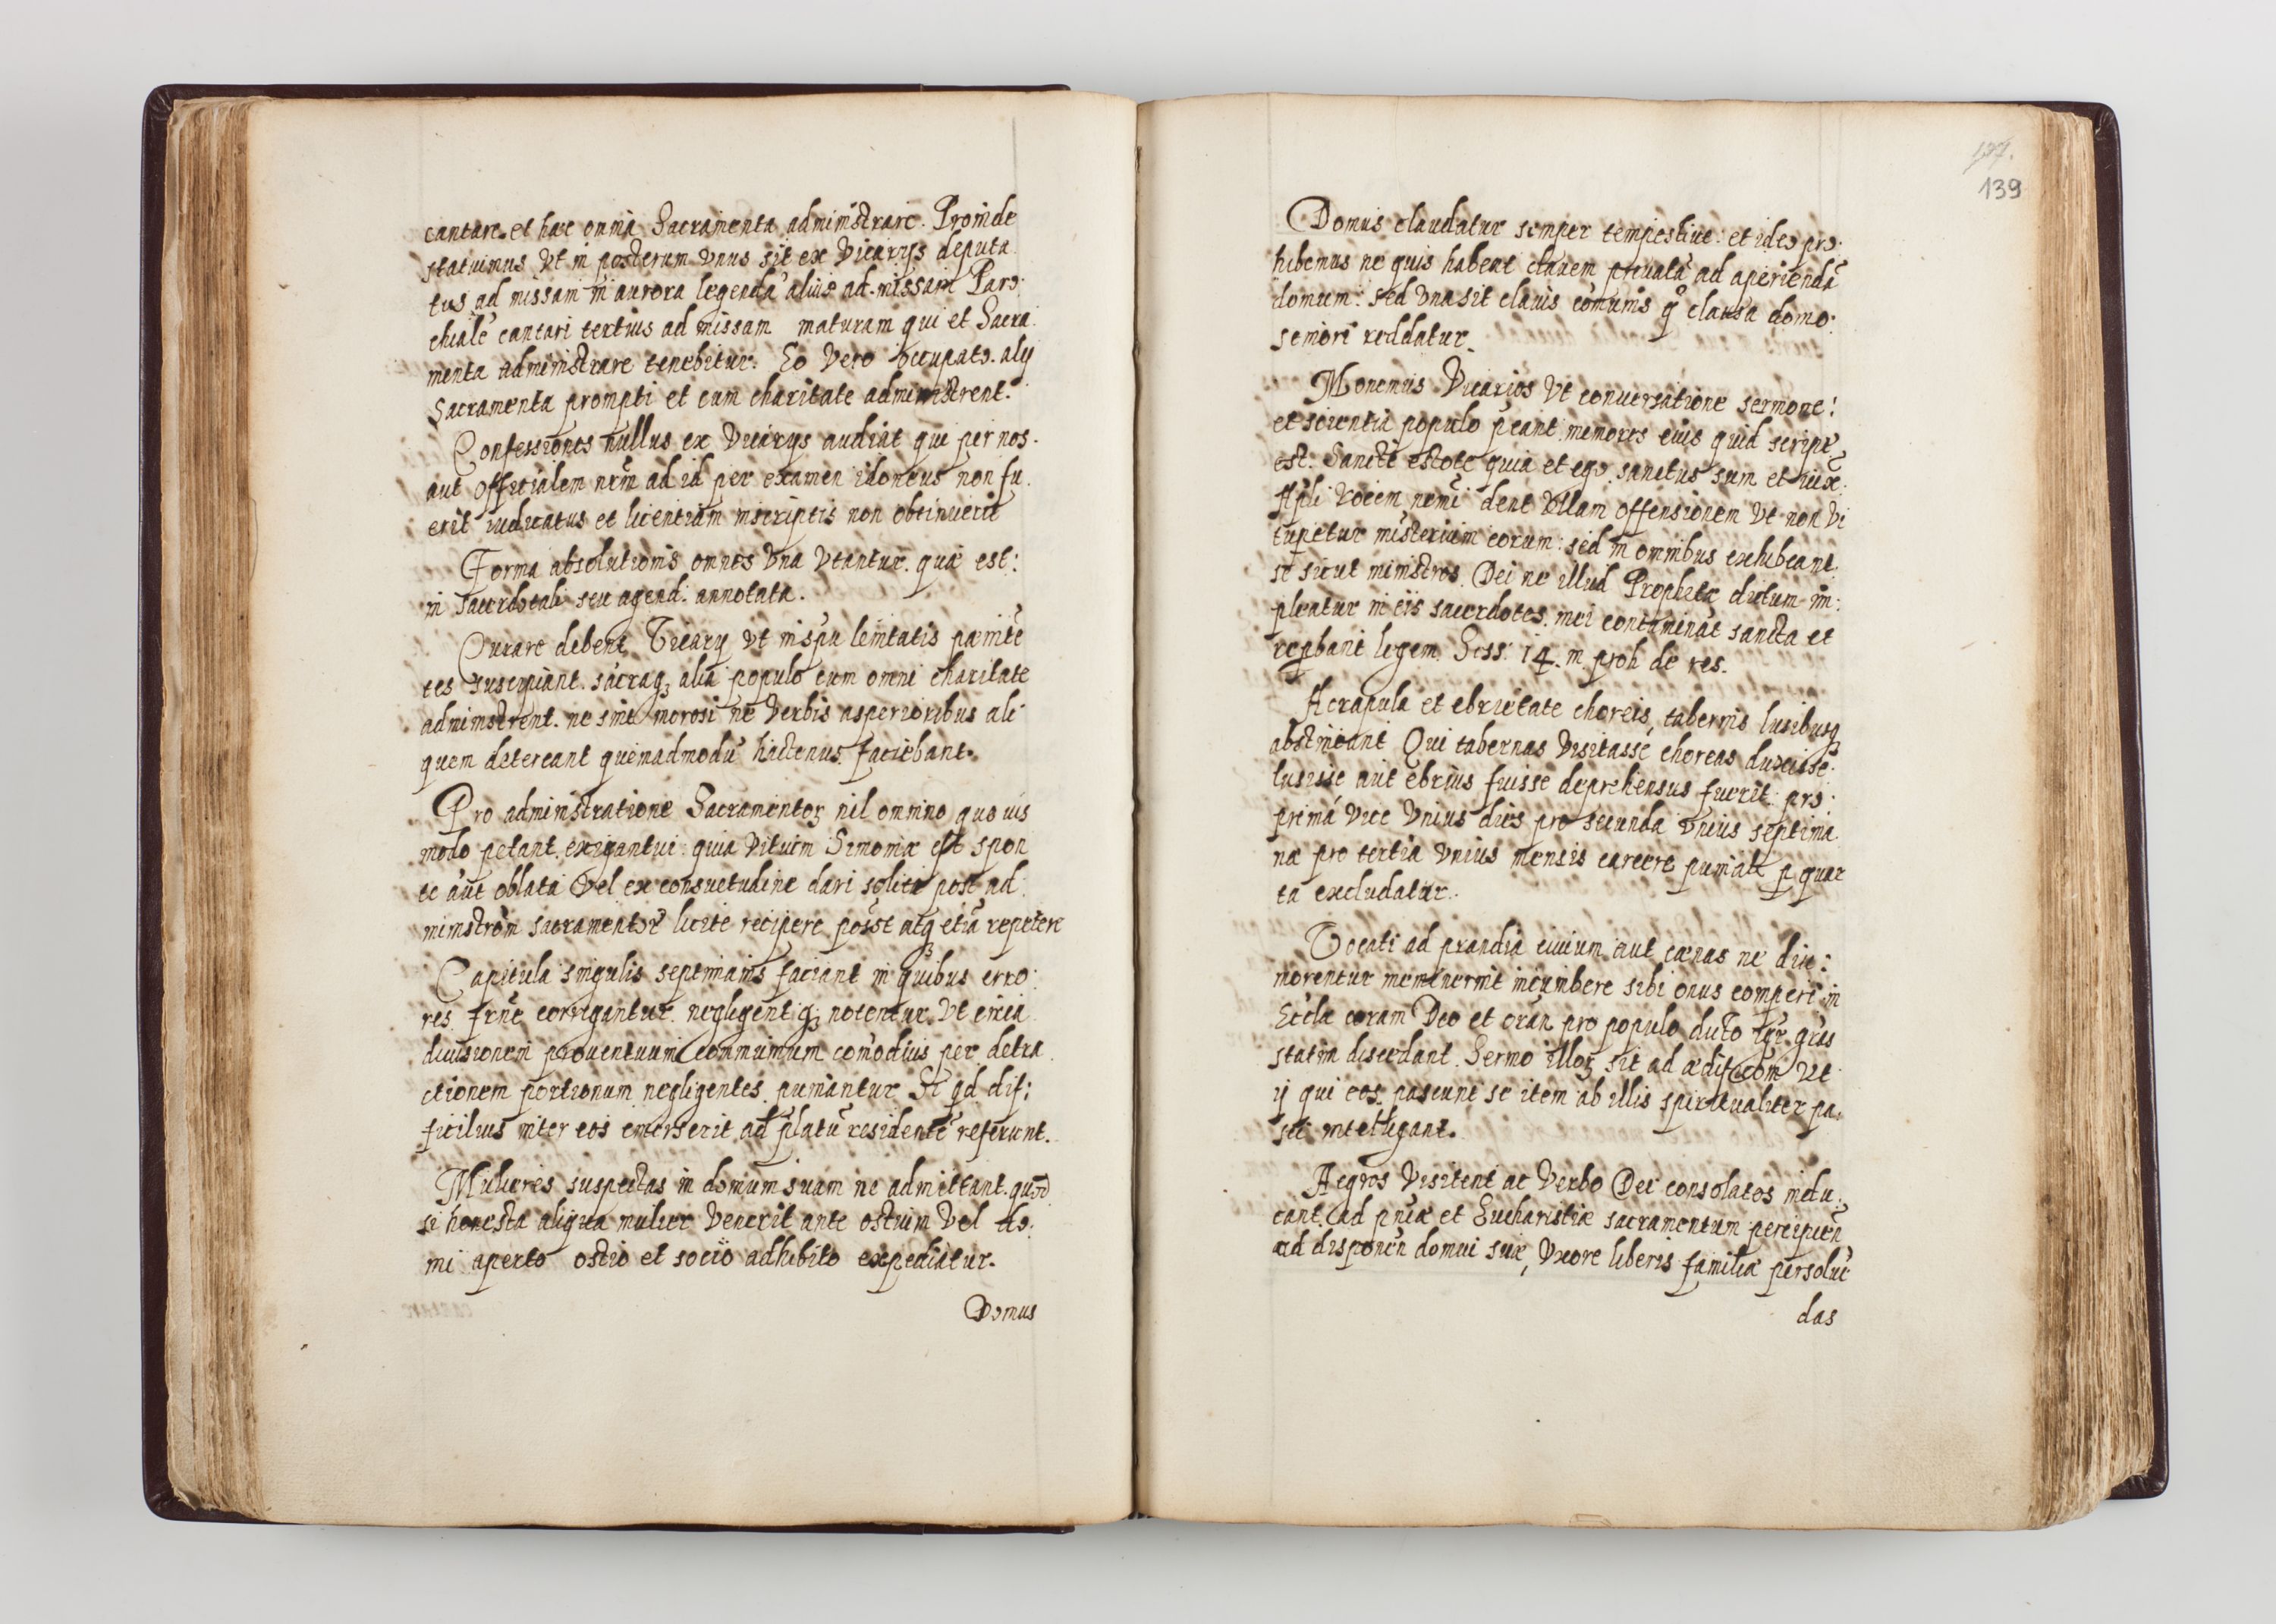 cantare et hæc omnia Sacramenta administrare. Proinde
statuimus Vt in posterum Vnus sit ex Vicarijs deputa
tus ad missam in aurora legendā alius ad missam Paro:
chialē cantari tertius ad missam maturam qui et Sacra:
menta administrare tenebitur. Eo Vero occupato alij
Sacramenta prompti et cum charitate administrent.
Confessiones nullus ex Vicarijs audiat qui per nos.
aut Officialem nrm̄ ad id per examen idoneus non fu:
erit iudicatus et licentiam inscriptis non obtinuerit
Forma absolutionis omnes Vna Vtantur. quæ est:
in sacerdotali seu agend: annotata.
Curare debent Vicarij Vt in spū lenitatis pœnitē
tes suscipiant. sacraqꝫ alia populo cum omni charitate
administrent. ne sint morosi ne Verbis asperioribus ali
quem deterreant quemadmodū hactenus faciebant.
Pro administratione Sacramentoꝝ nil omnino quo uis
modo petant. exigantui: quia Vitium Simoniæ est spon
te aut oblata Vel ex consuetudine dari solita post ad:
ministrōm sacramentor̄ licite recipere posst atqꝫ etiā repetere
Capitula singulis septimanis faciant in quibus erro:
res frn̄e corrigantur. negligent qꝫ notentur. Vt circa
diuisionem prouentuum communium comōdius per detra.
ctionem portionum negligentes puniantur. Si qd dif:
ficilius inter eos emerserit ad p̄latū residentē referunt.
Mulieres suspectas in domum suam ne admittant. quod
si honesta aliqua mulier Venerit ante ostium Vel do:
mi aperto ostio et socio adhibito expediatur.
Domus
139
Domus claudatur semper tempestiue: et ideo pro:
hibemus ne quis habeat clauem priuatā ad aperiendā
domum: sed Vna sit clauis comunis q̄ clausa domo:
seniori reddatur.
Monemus Vicarios Vt conuersatione sermone:
et scientia populo p̄eant memores eius quid script̄
est. Sancti estote quia et ego sanctus sum et iux̄:
Apli Vocem nemī dent Vllam offensionem Vt non Vi
tupetur misterium eorum: sed in omnibus exhibeant
se sicut ministros Dei ne illud Prophetæ dictum im:
pleatur in eis sacerdotes mei contaminat sancta et
repbant legem. Sess: 14. in proh de res.
A crapula et ebrietate choreis, tabernis lusibusqꝫ
abstineant Qui tabernas Visitasse, choreas duxisse:
lusisse aut ebrius fuisse deprehensus fuerit: pro:
prima Vice Vnius dies pro secunda Vnius septima
næ pro tertia Vnius mensis carcere puniat̄ p̱ quar
ta excludatur.
Vocati ad prandia ciuium aut cænas ne diu:
morentur meminerint incumbere sibi onus comperi in
Ecclæ coram Deo et orān pro populo. dicto igr̄ grās
statim discedant. Sermo illoꝝ sit ad ædificōm Vt
ij qui eos pascunt se item ab illis spiritualiter pa:
sci intelligant.
Aegros Visitent ac Verbo Dei consolatos indu:
cant. ad pniæ et Eucharistiæ sacramentum percipien̄
ad disponēn domui suæ, Vxore liberis familiæ persolue
das